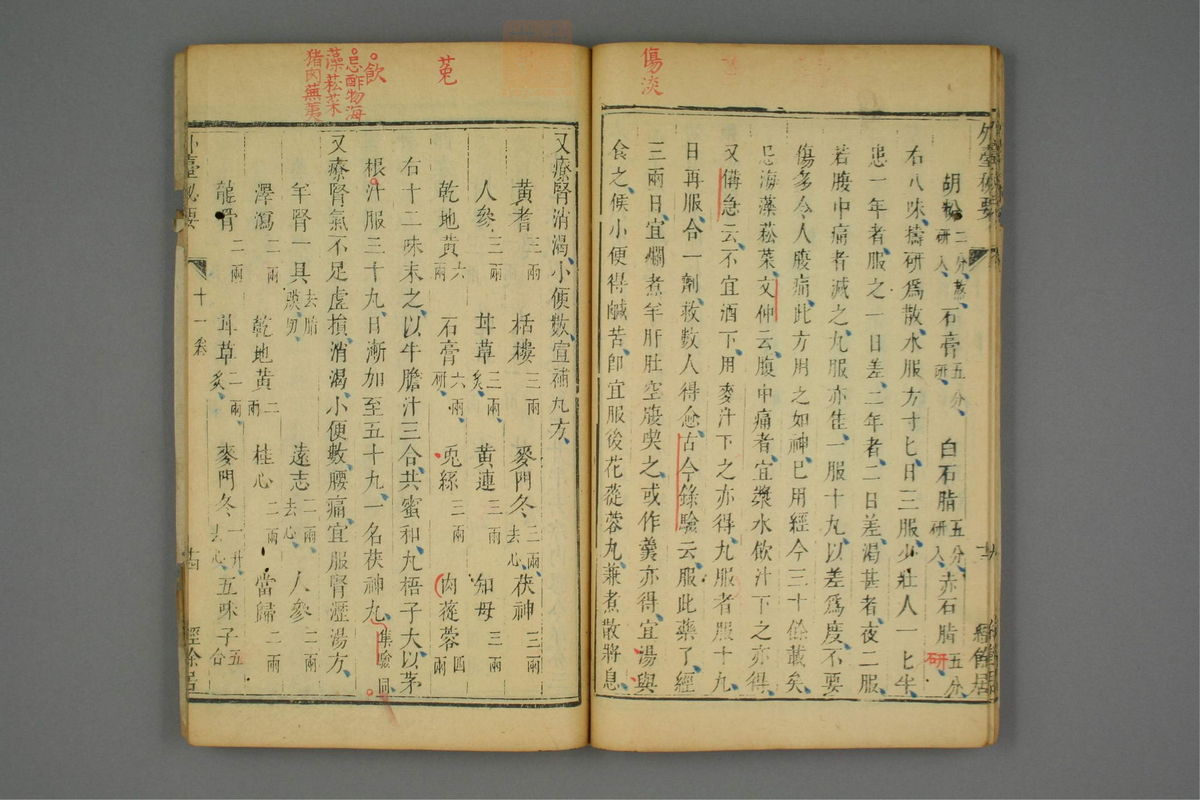 傷淡
外臺秘要
胡粉二分熬研入石膏五分研白石脂五分研入赤石脂五分研
右八味擣研爲散水服方寸匕日三服少壯人一匕半
患一年者服之一日差二年者二日差渴甚者夜二服
若腹中痛者減之丸服亦佳一服十丸以差爲度不要
傷多令人腹痛此方用之如神已用經今三十餘載矣
忌海藻菘菜文仲云腹中痛者宜漿水飲汁下之亦得
又備急云不宜酒下用麥汁下之亦得丸服者服十丸
日再服合一劑救數人得愈古今錄驗云服此藥了經
三兩日宜爛煮羊肝肚空腹喫之或作羹亦得宜湯與
食之候小便得鹹苦卽宜服後花蓯蓉丸兼煮散將息
菟
飲
忌酢物海
藻菘菜
猪肉蕪荑
又療腎消渴小便數宜補丸方
黃耆三兩栝樓三兩麥門冬二兩去心茯神三兩
人參三兩甘草三兩炙黃連三兩知母三兩
乾地黃六兩石膏六兩研兎絲三兩肉蓯蓉四兩
右十二味末之以牛膽汁三合共蜜和丸梧子大以茅
根汁服三十丸日漸加至五十丸一名茯神丸集驗同
又療腎氣不足虛損消渴小便數腰痛宜服腎瀝湯方
羊腎一具去脂膜切遠志二兩去心人參二兩
澤瀉二兩乾地黃二兩桂心二兩當歸二兩
龍骨二兩甘草二兩炙麥門冬一升去心五味子五合
外臺秘要
十一卷
經餘居